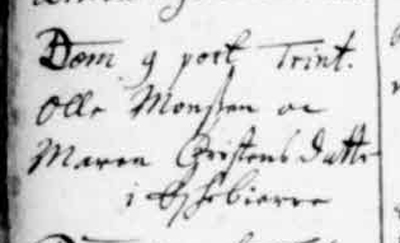 Dom 9 post Trint.
Olle Monsen oc
Maren Cristensdatter
i Eskebierre